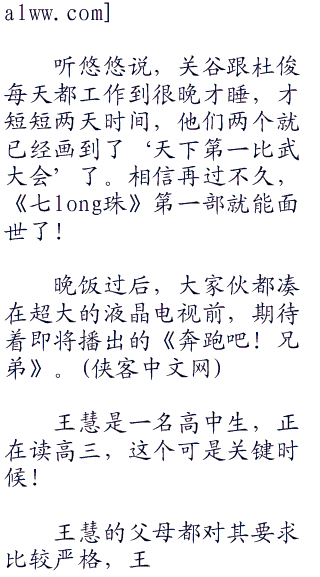 a1ww.com]
听悠悠说，关谷跟杜俊
每天都工作到很晚才睡，才
短短两天时间，他们两个就
已经画到了‘天下第一比武
大会’了。相信再过不久，
《七long珠》第一部就能面
世了！
晚饭过后，大家伙都凑
在超大的液晶电视前，期待
着即将播出的《奔跑吧！兄
弟》。(侠客中文网)
王慧是一名高中生，正
在读高三，这个可是关键时
候！
王慧的父母都对其要求
比较严格，王